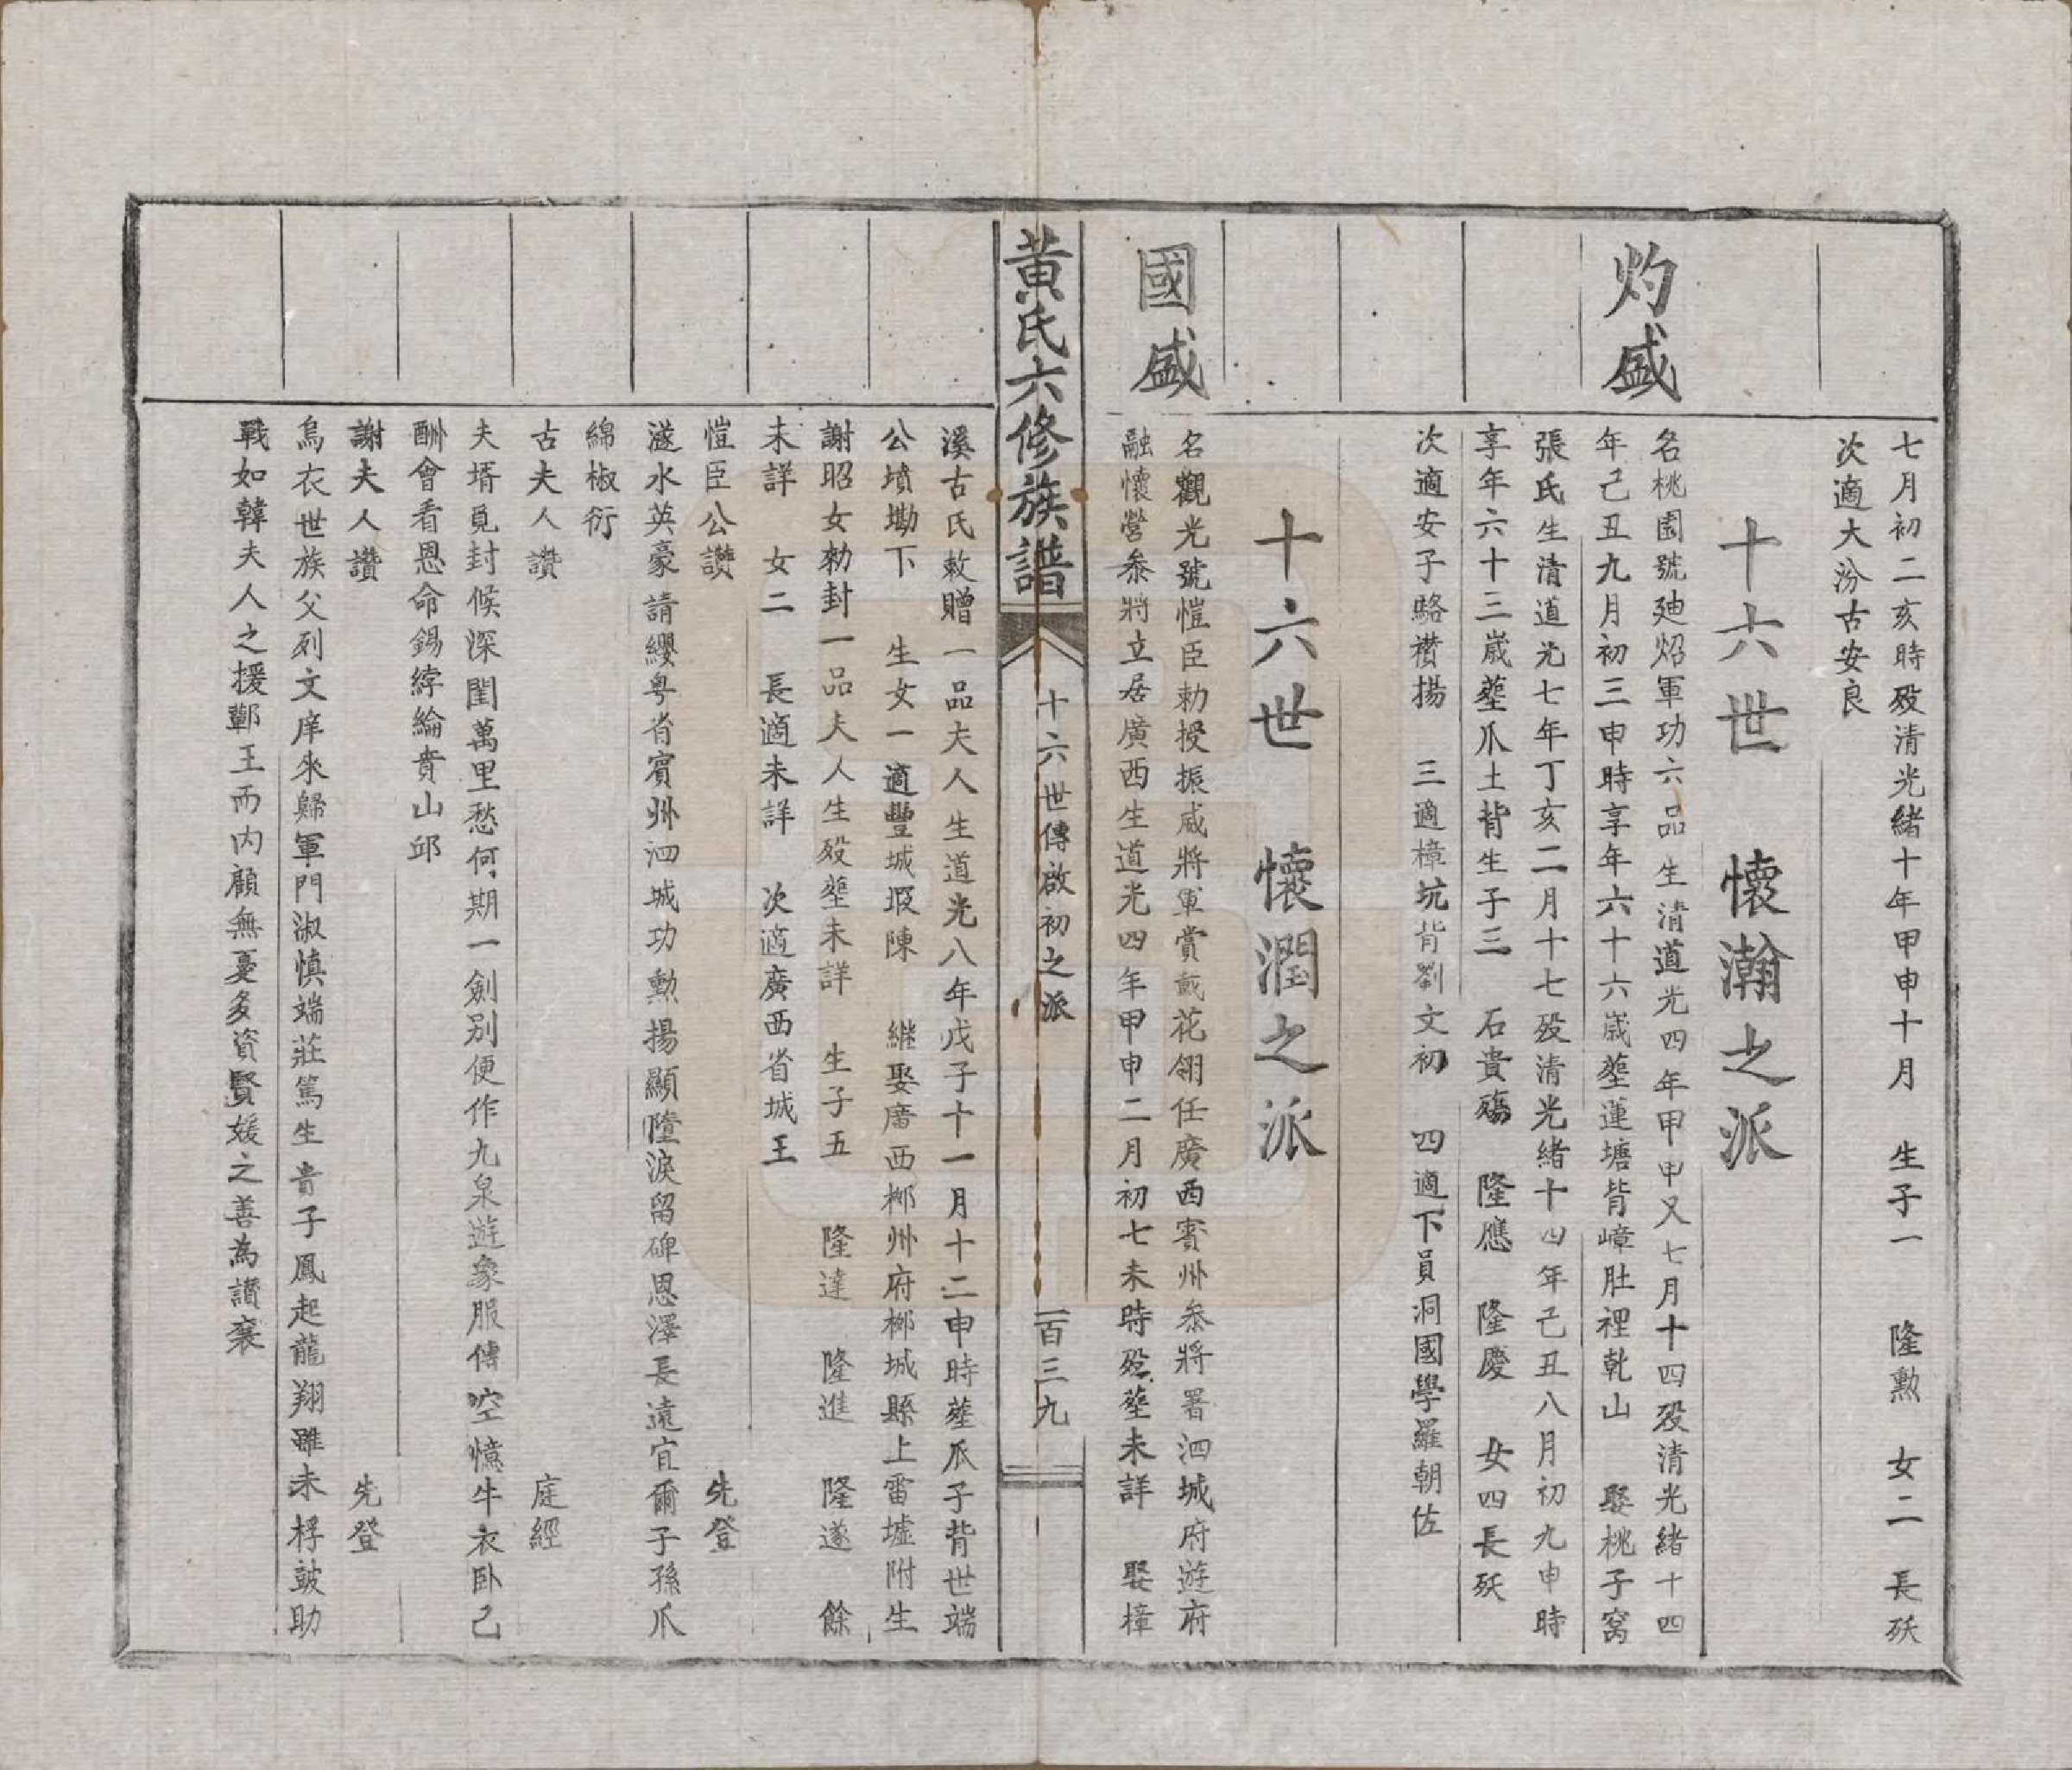 七月初二亥時殁清光緒十年甲申十月　生子一　隆勲　女二　長殀
次適大汾古安良
十六世　懷瀚之派
灼盛
名桃園號廸炤軍功六品生清道光四年甲申又七月十四殁清光緒十四
年己丑九月初三申時享年六十六歲塟蓮塘背嶂肚裡乾山　娶桃子窩
張氏生清道光七年丁亥二月十七殁清光緒十四年己丑八月初九申時
享年六十三歲塟爪土背生子三　石貴殤　隆應　隆慶　女四長殀
次適安子駱禶揚　三適樟坑背劉文初　四適下員洞國學羅朝佐
十六世　懷潤之派
國盛
名觀光號愷臣勅授振威將軍賞戴花翎任廣西賓州叅將署泗城府遊府
融懷營叅將立居廣西生道光四年甲申二月初七未時殁塟未詳　娶樟
黃氏六修族譜
十六世傳啟初之派
一百三九
溪古氏敕贈一品夫人生道光八年戊子十一月十二申時塟爪子背世端
公墳坳下　生女一適豐城瑕陳　継娶廣西栁州府栁城縣上雷墟附生
謝昭女勅封一品夫人生殁塟未詳　生子五　隆達　隆進　隆遂　餘
未詳　女二　長適未詳　次適廣西省城王
愷臣公讚　先登
遂水英豪請纓粤省賓州泗城功勲揚顯墮淚留碑恩澤長遠宜爾子孫瓜
綿椒衍
古夫人讚　庭經
夫壻覓封候深閨萬里愁何期一劍别便作九泉遊象服傳空憶牛衣卧己
酬會看恩命錫綍綸賁山邱
謝夫人讚　先登
烏衣世族父列文庠來歸軍門淑慎端莊篤生貴子鳳起龍翔雖未桴鼓助
戰如韓夫人之援鄿王而内顧無憂多資賢媛之善為讃襄